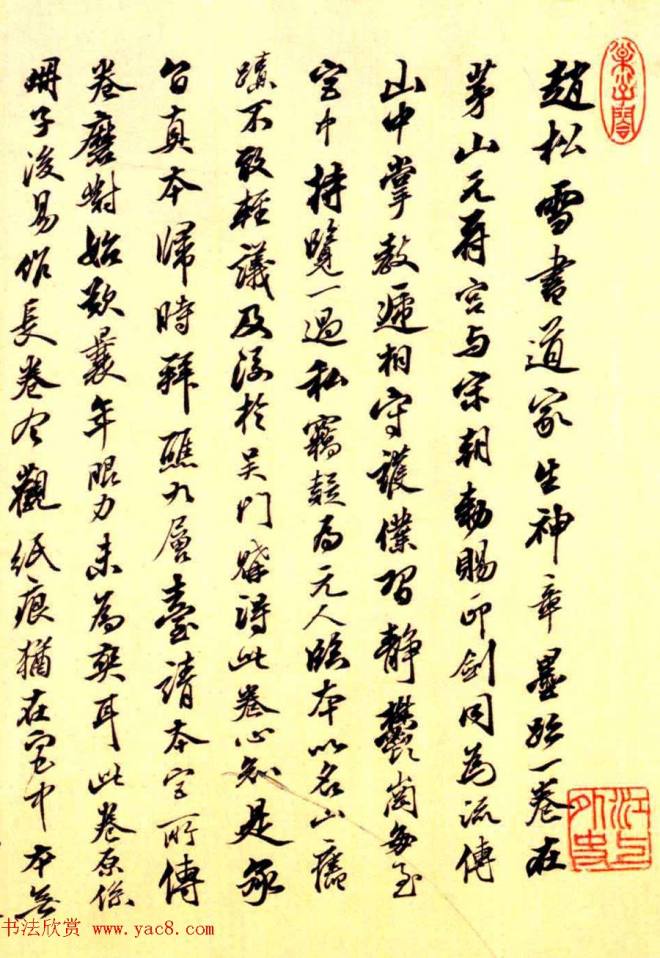 趙松雪書道家生神章墨跡一卷在
茅山元符宮与宋朝勅賜印劍同為流傳
山中掌教遞相守護僕習静鬱崗每至
宮中持覽一過私竊疑為元人臨本以名山舊
蹟不敢輕議及後於吳門購得此卷心知是承
旨真本歸時拜醮九層臺請本宮所傳
卷磨對始歎曩年眼力未為爽耳此卷原係
冊子後易作長卷今觀紙痕猶在宮中本無
江上外史
书法欣赏 www.yac8.com